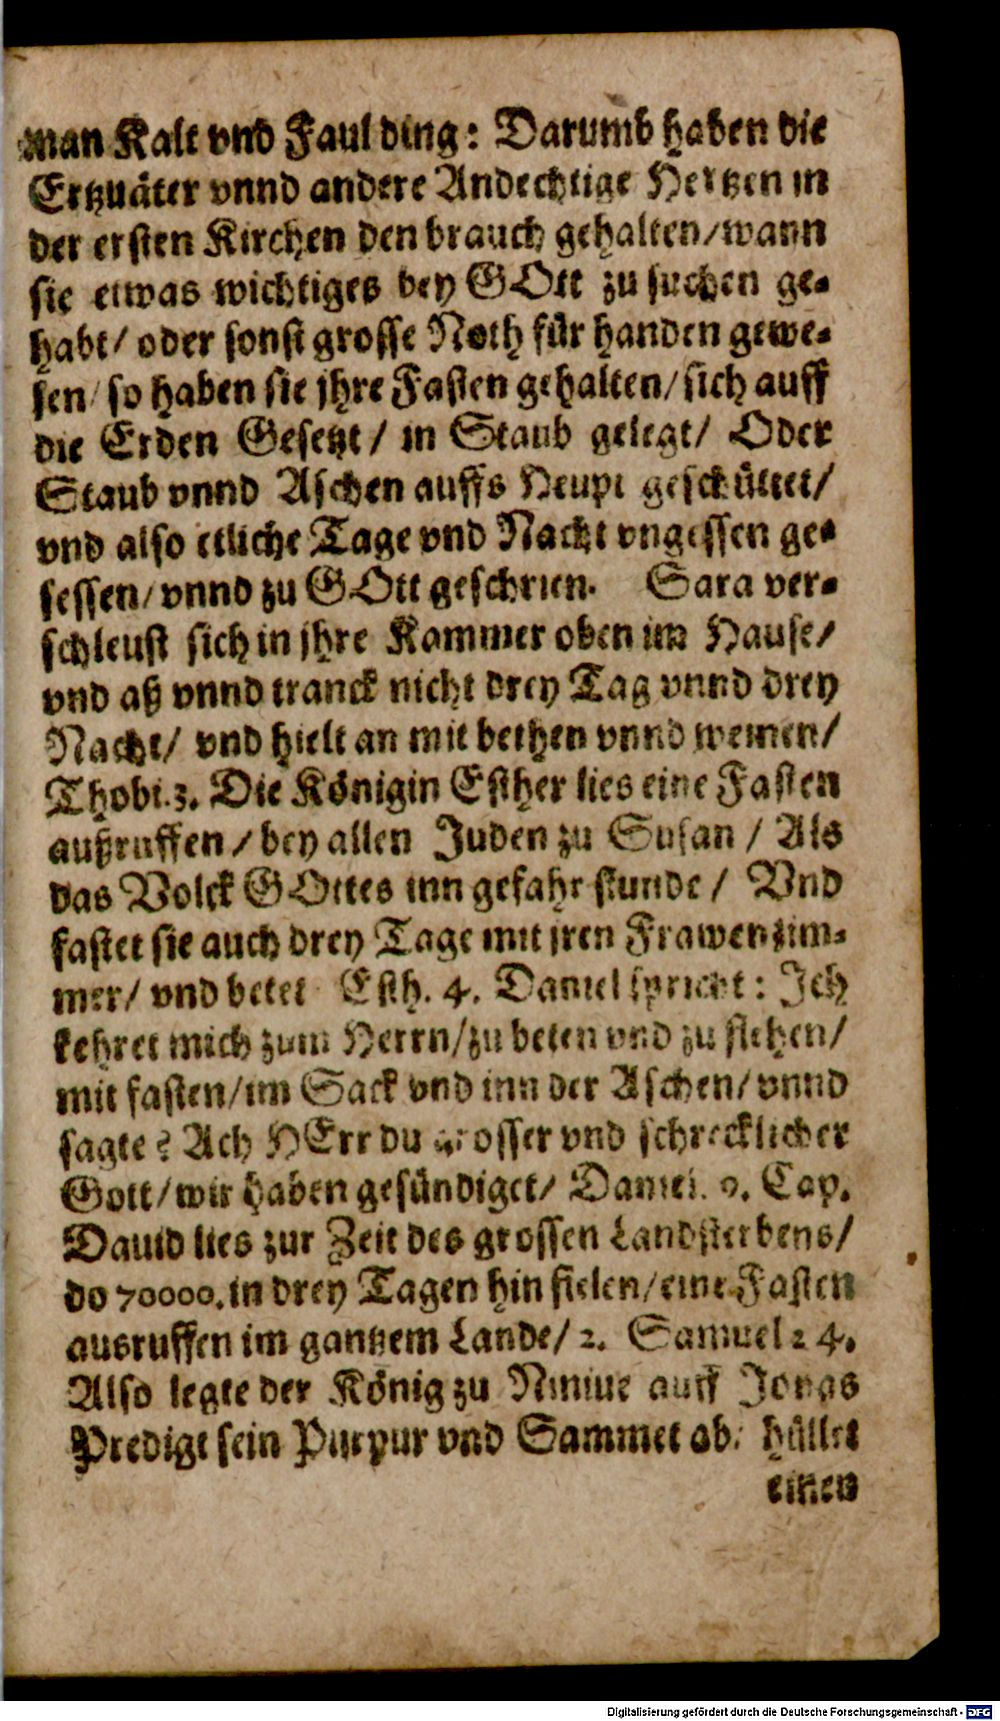 man Kalt vnd Faul ding: Darumb haben die
Ertzuäter vnnd andere Andechtige Hertzen in
der ersten Kirchen den brauch gehalten/wann
sie etwas wichtiges bey GOtt zu suchen ge-
habt/ oder sonst grosse Noth für handen gewe-
sen/so haben sie jhre Fasten gehalten/sich auff
die Erden Gesetzt/ in Staub gelegt/ Oder
Staub vnnd Aschen auffs Heupt geschüttet/
vnd also etliche Tage vnd Nacht vngessen ge-
sessen/vnnd zu GOtt geschrien. Sara ver-
schleust sich in jhre Kammer oben im Hause/
vnd aß vnnd tranck nicht drey Tag vnnd drey
Nacht/ vnd hielt an mit bethen vnnd weinen/
Thobi.3. Die Königin Esther lies eine Fasten
außruffen/bey allen Juden zu Susan/ Als
das Volck GOttes inn gefahr stunde/ Vnd
fastet sie auch drey Tage mit jren Frawenzim-
mer/ vnd betet Esth. 4. Daniel spricht: Jch
kehret mich zum Herrn/zu beten vnd zu flehen/
mit fasten/im Sack vnd inn der Aschen/vnnd
sagte? Ach HErr du grosser vnd schrecklicher
Gott/wir haben gesündiget/ Daniel. 9. Cap.
Dauid lies zur Zeit des grossen Landsterbens/
do 70000. in drey Tagen hin fielen/eine Fasten
ausruffen im gantzem Lande/2. Samuel 24.
Also legte der König zu Niniue auff Jonas
Predigt sein Purpur vnd Sammet ab/ hüllet
einen
Digitalisierung gefördert durch die Deutsche Forschungsgemeinschaft - DFG